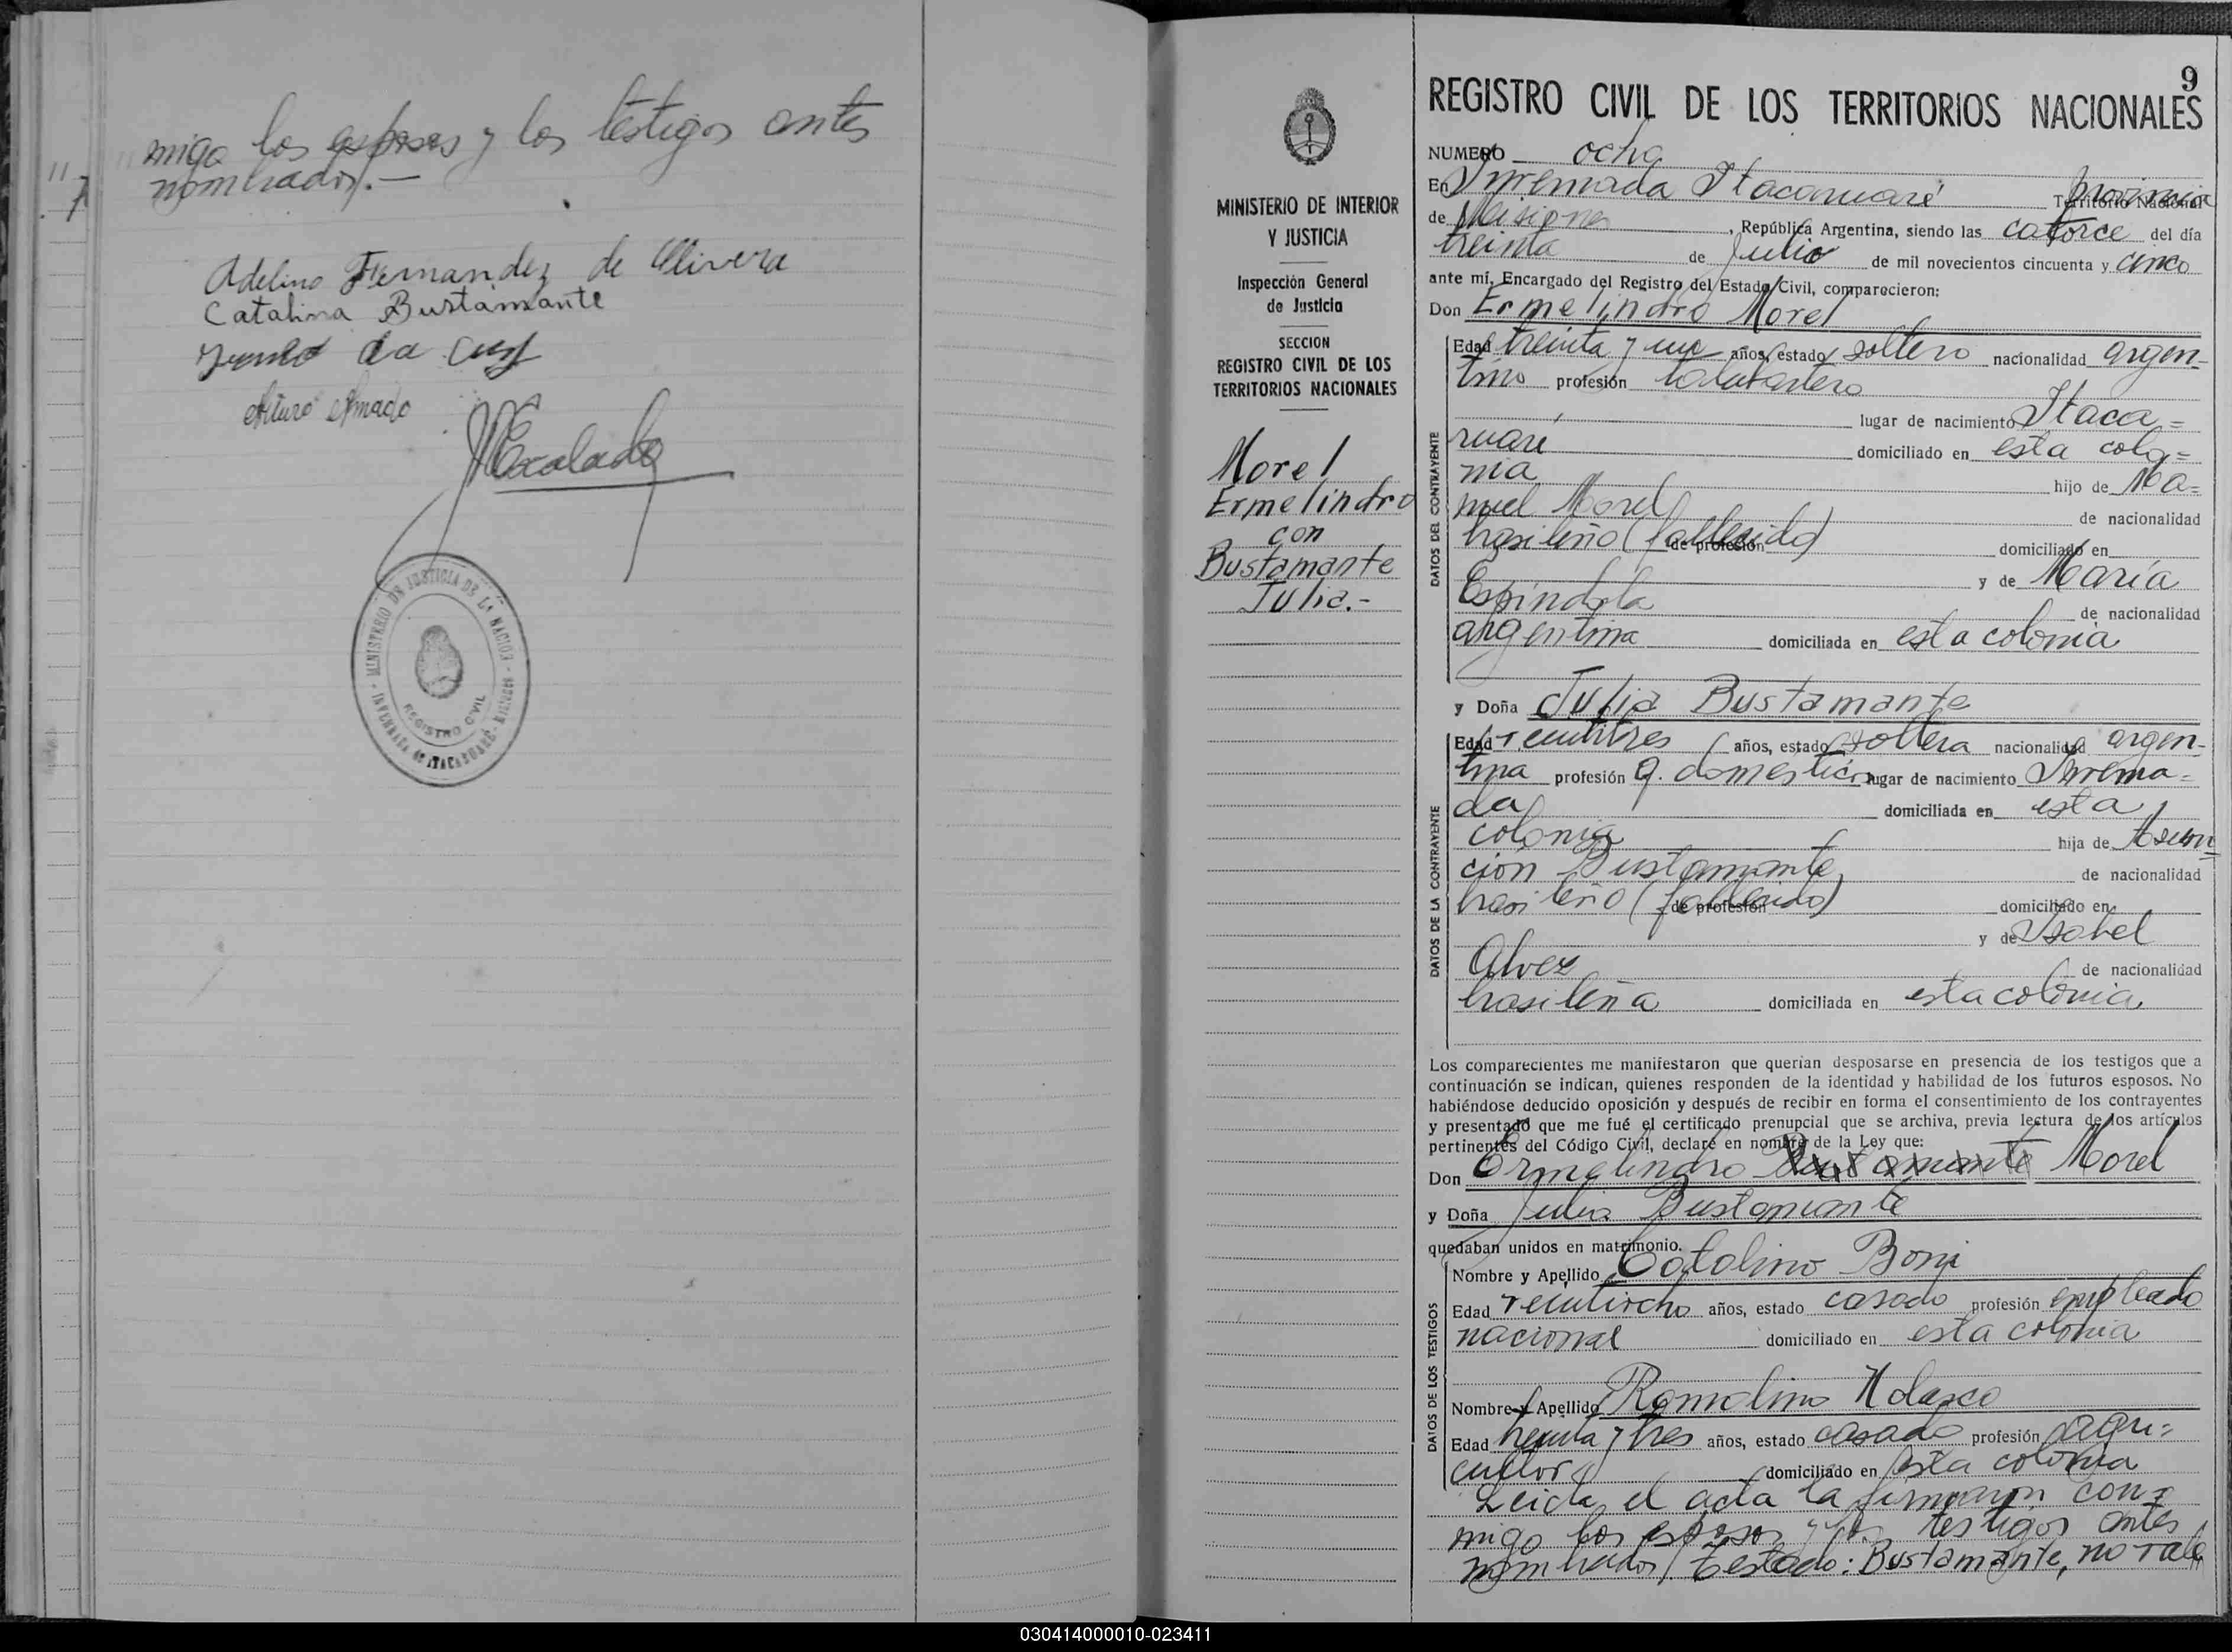 migo los esposos y los testigos antes
nombrados.—
Adelino Fernandez de Olivera
Catalina Bustamante
da Cruz
Arturo Amado
Escalada
MINISTERIO DE JUSTICIA DE LA NACION - INVERNADA DE ITACARUARÉ - MISIONES
REGISTRO CIVIL
MINISTERIO DE INTERIOR
Y JUSTICIA
Inspección General
de Justicia
SECCION
REGISTRO CIVIL DE LOS
TERRITORIOS NACIONALES
Morel
Ermelindro
con
Bustamante
Julia.-
9
REGISTRO CIVIL DE LOS TERRITORIOS NACIONALES
NUMERO ocho
En Invernada Itacaruaré Territorio Nacional provincia
de Misiones, República Argentina, siendo las catorce del día
treinta de Julio de mil novecientos cincuenta y cinco
ante mí, Encargado del Registro del Estado Civil, comparecieron:
Don Ermelindro Morel
DATOS DEL CONTRAYENTE
Edad treinta y un años, estado soltero nacionalidad argen-
tino profesión talabartero
lugar de nacimiento Itaca=
ruaré domiciliado en esta colo=
nia hijo de Ma=
nuel Morel de nacionalidad
brasileño (fallecido) de profesión domiciliado en
y de María
Espíndola de nacionalidad
argentina domiciliada en esta colonia
y Doña Julia Bustamante
DATOS DE LA CONTRAYENTE
Edad veintitres años, estado soltera nacionalidad argen-
tina profesión q. domesticos lugar de nacimiento Inverna=
da domiciliada en esta
colonia hija de Asun=
ción Bustamante de nacionalidad
brasileño (fallecido) de profesión domiciliado en
y de Isabel
Alvez de nacionalidad
brasileña domiciliada en esta colonia
Los comparecientes me manifestaron que querían desposarse en presencia de los testigos que a
continuación se indican, quienes responden de la identidad y habilidad de los futuros esposos. No
habiéndose deducido oposición y después de recibir en forma el consentimiento de los contrayentes
y presentado que me fué el certificado prenupcial que se archiva, previa lectura de los artículos
pertinentes del Código Civil, declaré en nombre de la Ley que:
Don Ermelindro Bustamante Morel
y Doña Julia Bustamante
quedaban unidos en matrimonio.
DATOS DE LOS TESTIGOS
Nombre y Apellido Catalino Boni
Edad veintiocho años, estado casado profesión empleado
nacional domiciliado en esta colonia
Nombre y Apellido Romolino
Edad treinta y tres años, estado casado profesión agri=
cultor domiciliado en esta colonia
Leida el acta la firmaron con=
migo los esposos y los testigos antes
nombrados/ Testado: Bustamante, no vale
030414000010-023411